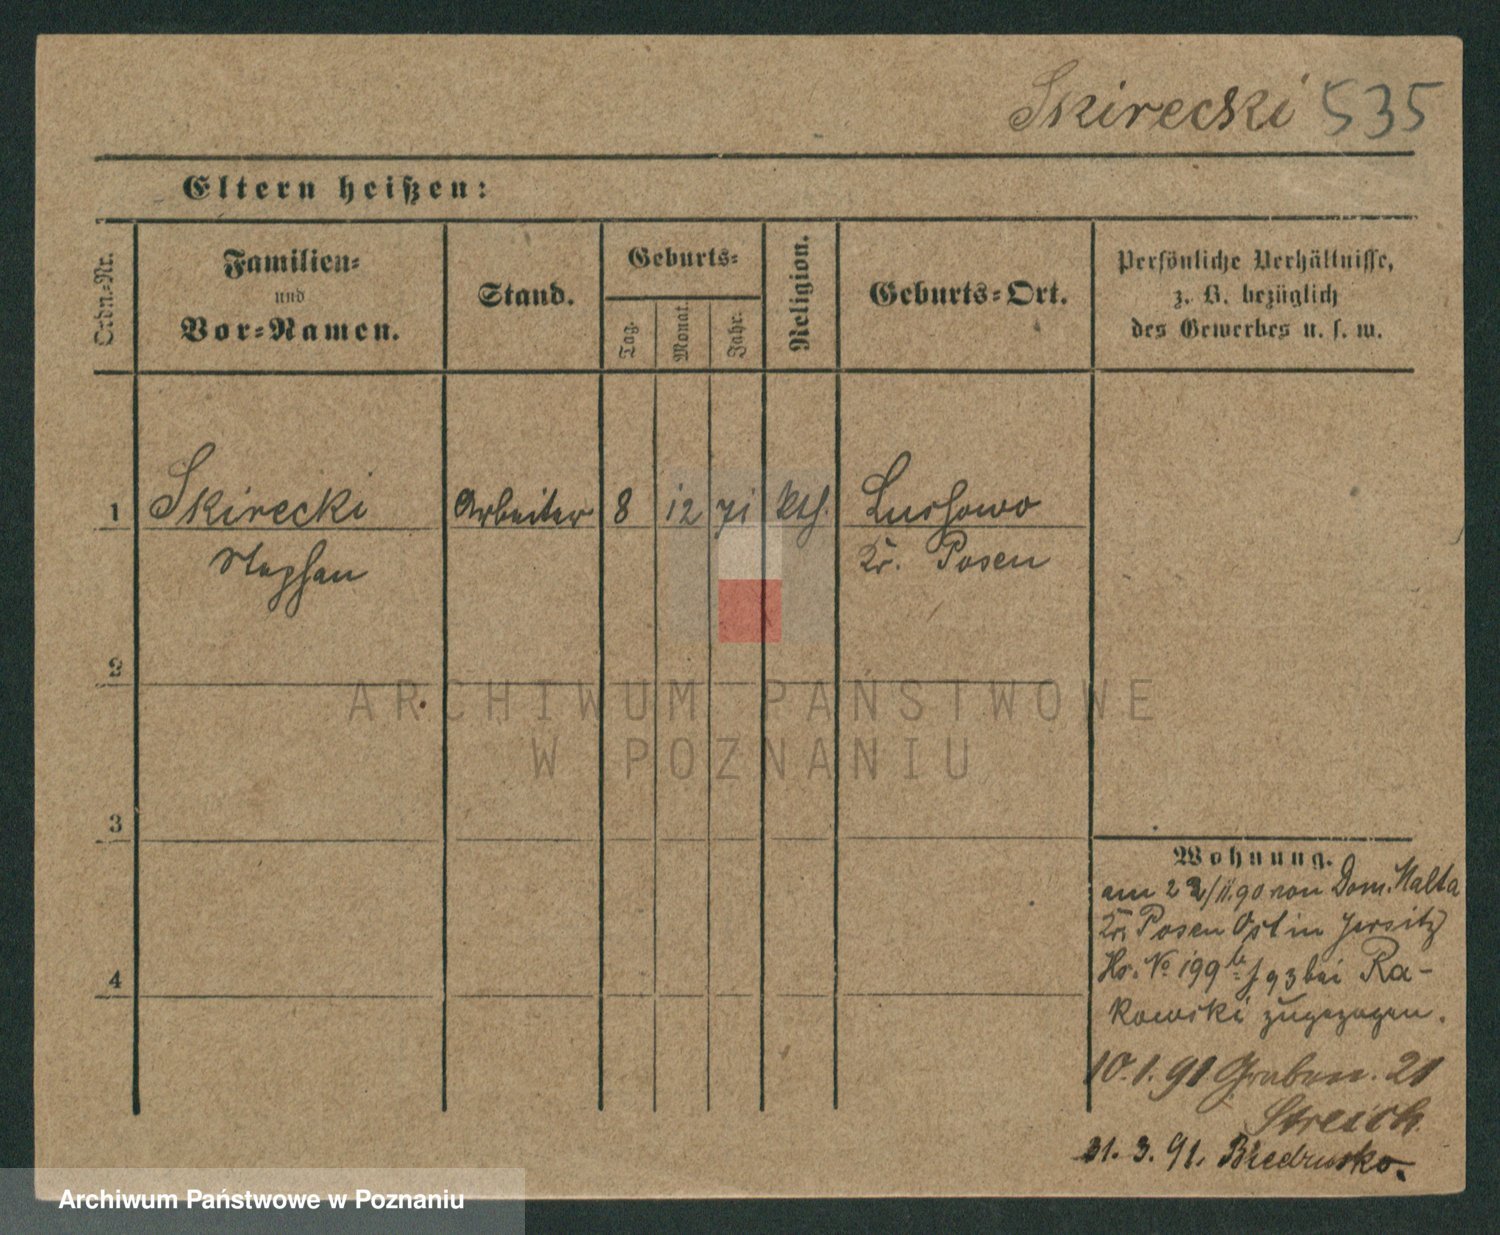 Skirecki 535
Eltern heißen:
Ordn.-Nr.
Familien-
und
Vor-Namen.
Stand.
Geburts-
Tag.
Monat.
Jahr.
Religion.
Geburts-Ort.
Persönliche Verhältnisse,
z. B. bezüglich
des Gewerbes u. s. w.
1 Skirecki Arbeiter 8 12 71 kth. Lussowo
Stephan Kr. Posen
2
ARCHIWUM PAŃSTWOWE
W POZNANIU
3
Wohnung.
am 22/11.90 von Dom. Malta
Kr. Posen Ost in Jersitz
Hs. No 199 bei Ra-
4
kowski zugezogen.
10.1.91 Graben. 21
Streich
31.3.91. Biedrusko.
Archiwum Państwowe w Poznaniu